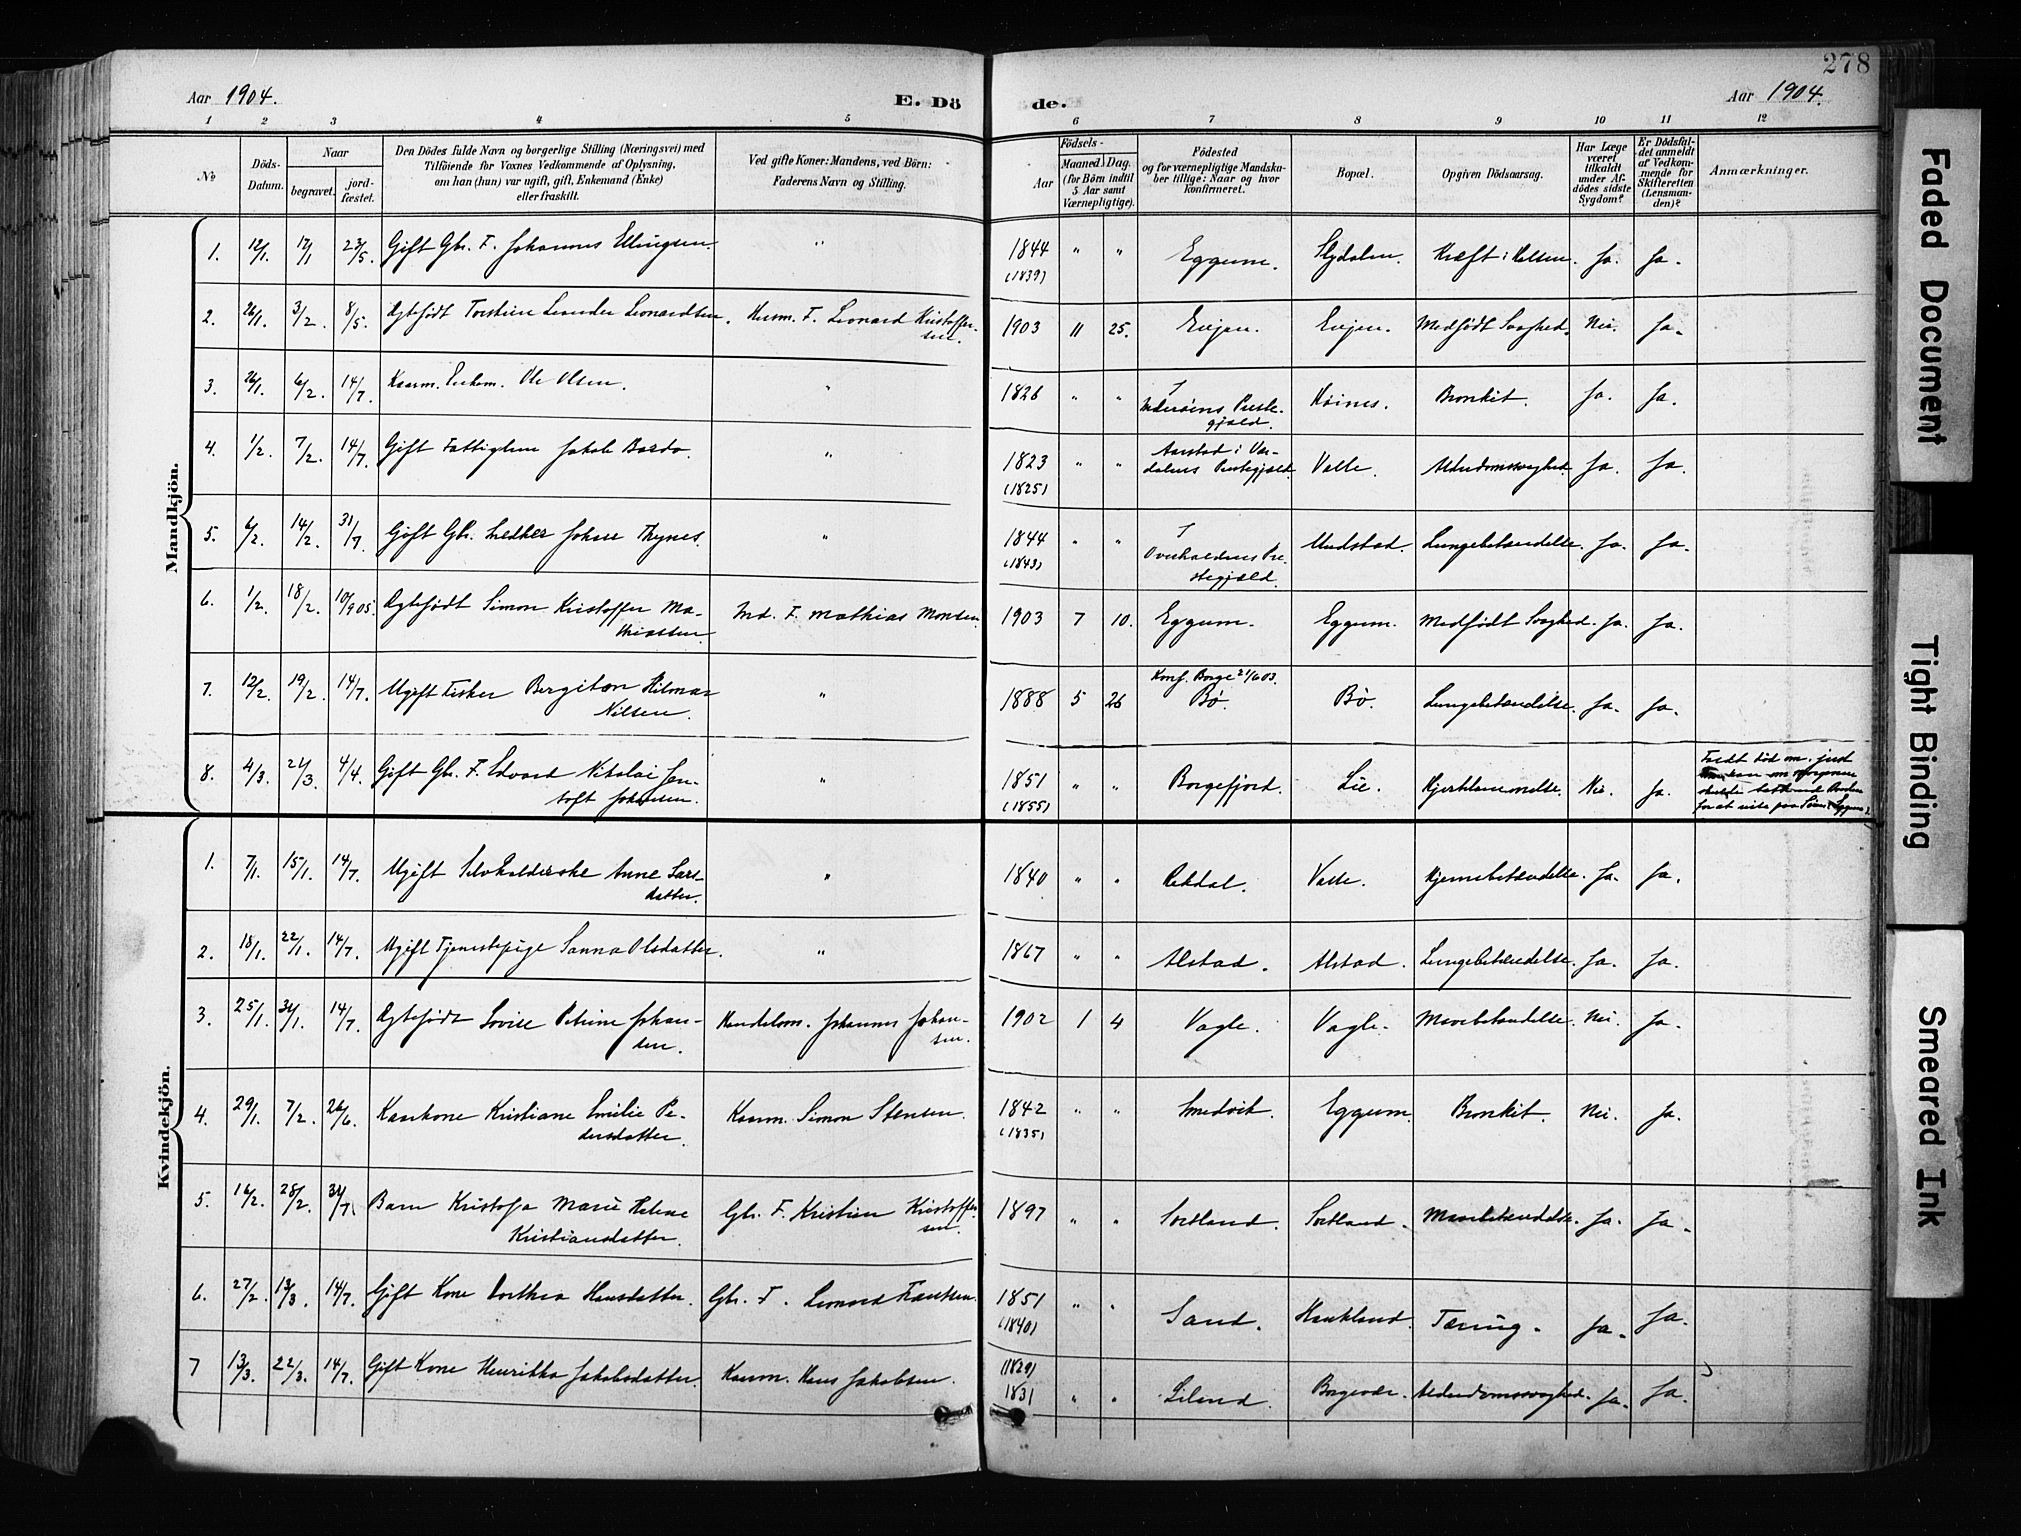 278
Aar 1904.
E. Dö
de.
Aar 1904.
1 2 3 4 5 6 7 8 9 10 11 12
№
Döds-
Datum.
Naar
begravet.
jord-
fæstet.
Den Dödes fulde Navn og borgerlige Stilling (Næringsvei) med
Tilföiende for Voxnes Vedkommende af Oplysning,
om han (hun) var ugift, gift, Enkemand (Enke)
eller fraskilt.
Ved gifte Koner: Mandens, ved Börn:
Faderens Navn og Stilling.
Födsels-
Aar
Maaned. Dag.
(for Börn indtil
5 Aar samt
Værnepligtige).
Födested
og for værnepligtige Mandsku-
ber tillige: Naar og hvor
konfirmeret.
Bopæl.
Opgiven Dödsaarsag.
Har Læge
været
tilkaldt
under Af-
dödes sidste
Sygdom?
Er Dödsfal-
det anmeldt
af Vedkom-
mende for
Skifteretten
(Lensman-
den)?
Anmærkninger.
Mandkjön.
1. 12/1. 17/1 23/5. Gift Gbr. F. Johannes Ellingsen. " 1844 " " Eggum. Kræft i Halsen. Ja. Ja.
(1839)
2. 26/1. 3/2. 8/5. Ægtefødt Torstein Leander Leonardsen. Husm. F. Leonard Kristoffer-
sen.
1903 11 25. Evjen. Evjen. Medfødt Svaghed. Nei. Ja.
3. 26/1. 6/2. 14/7. Kaarm. Enkem. Ole Olsen. " 1826 " " Bronkit. Ja. Ja.
Inderøens Præste-
gjæld.
4. 1/2. 7/2. 14/7. Gift Fattiglem Jakob Bardo. " 1823 " " Aarstad i Vær-
dalens Prestegjæld. Valle. Alderdomssvaghed. Ja. Ja.
(1825)
5. 6/2. 14/2. 31/7. Gift Gbr. Johan Thynes. " 1844 " " Overhaldens Præ-
stegjæld. Lungebetændelse. Ja. Ja.
(1843)
6. 1/2. 18/2. 10/9 05. Ægtefødt Simon Kristoffer Ma-
thiassen Ind. F. Mathias Monsen 1903 7 10. Eggum. Eggum. Medfødt Svaghed. Ja. Ja.
7. 12/2. 19/2. 14/7. Ugift Fisker Bergiton Hilmar
Nilsen. " 1888 5 26 Konf. Borge 21/6 03.
Bø. Bø. Lungebetændelse. Ja. Ja.
8. 4/3. 21/3. 4/4. Gift Gbr. F. Edvard Nikolai Jen-
toft Johansen. " 1851 " " Borgefjord. Lie. Hjertelammelse. Nei. Ja.
(1855)
Kvindekjön.
1. 7/1. 15/1. 14/7. Ugift Selvholderske Anne Lars-
datter. " 1840 " " Valle. Hjernebetændelse. Ja. Ja.
2. 18/1. 22/1. 14/7. Ugift Tjenestepige Sanna Olsdatter. " 1867 " " Alstad. Alstad. Lungebetændelse. Ja. Ja.
3. 25/1. 31/1. 14/7. Ægtefødt Lovise Petrine Johan-
sen. Handelsm. Johannes Johan-
sen. 1902 1 4 Vagle. Vagle. Mavebetændelse. Nei. Ja.
4. 29/1. 7/2. 26/6. Kaarkone Kristiane Emilie Pe-
dersdatter. Kaarm. Simon Stensen. 1842 " " Smedvik. Eggum. Bronkit. Nei. Ja.
(1835)
5. 16/2. 28/2. 31/7. Barn Kristofa Marie Helene
Kristiansdatter. Gbr. F. Kristian Kristoffer-
sen. 1897 " " Sortland. Sortland. Mavebetændelse. Ja. Ja.
6. 27/2. 13/3. 14/7. Gift Kone Dorthea Hansdatter. Gbr. F. Leonard Frantsen. 1851 " " Sand. Haukland. Tæring. Ja. Ja.
(1840)
7 13/3. 22/3. 14/7. Gift Kone Henrikka Jakobsdatter. Kaarm. Hans Jakobsen. (1829)
1831 " " Lilend. Alderdomssvaghed. Ja. Ja.
Faded Document
Tight Binding
Smeared Ink